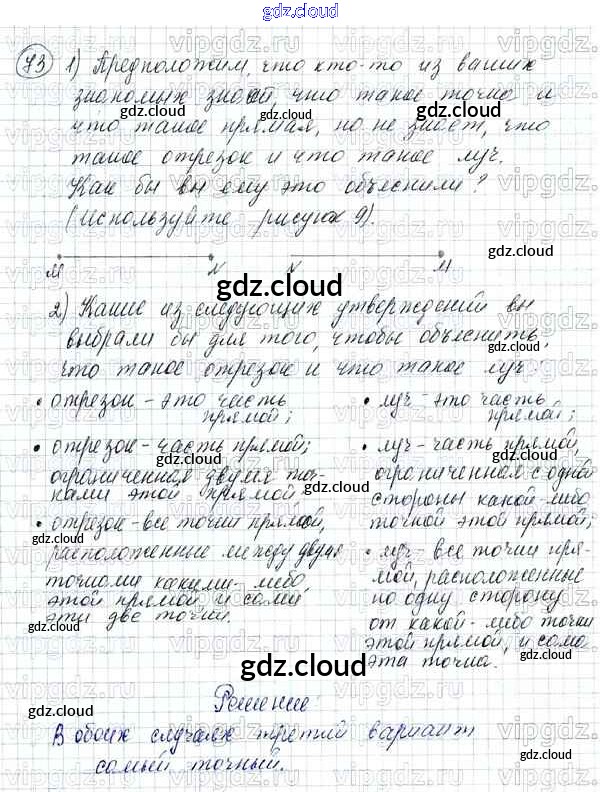 gdz.cloud
73 1) Предположим, что кто-то из ваших
знакомых знает, что такое точка и
что такое прямая, но не знает, что
такое отрезок и что такое луч.
Как бы вы ему это объяснили?
(Используйте рисунок 9).
M N N M
2) Какие из следующих утверждений вы
выбрали бы для того, чтобы объяснить,
что такое отрезок и что такое луч:
• отрезок - это часть
прямой;
• отрезок - часть прямой,
ограниченная двумя точ-
ками этой прямой.
• отрезок - все точки прямой,
расположенные между двумя
точками какими-либо
этой прямой и сами
эти две точки.
• луч - это часть
прямой;
• луч - часть прямой,
ограниченная с одной
стороны какой-либо
точкой этой прямой;
• луч - все точки пря-
мой, расположенные
по одну сторону
от какой-либо точки
этой прямой, и сама
эта точка.
Решение
В обоих случаях третий вариант
самый точный.